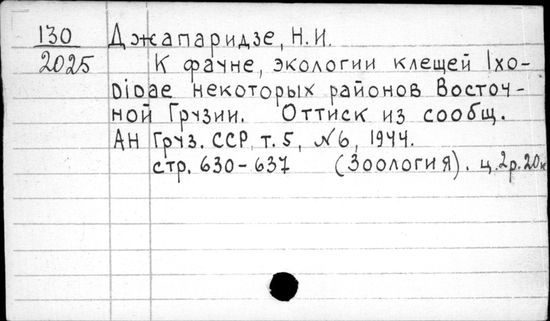 130 Джапаридзе, Н.И.
2025 К фауне, экологии клещей Ixo-
didae некоторых районов Восточ-
ной Грузии. Оттиск из сообщ.
АН Груз. ССР, т. 5, №6, 1944.
стр. 630-637 (Зоология). ц. 2р. 20к